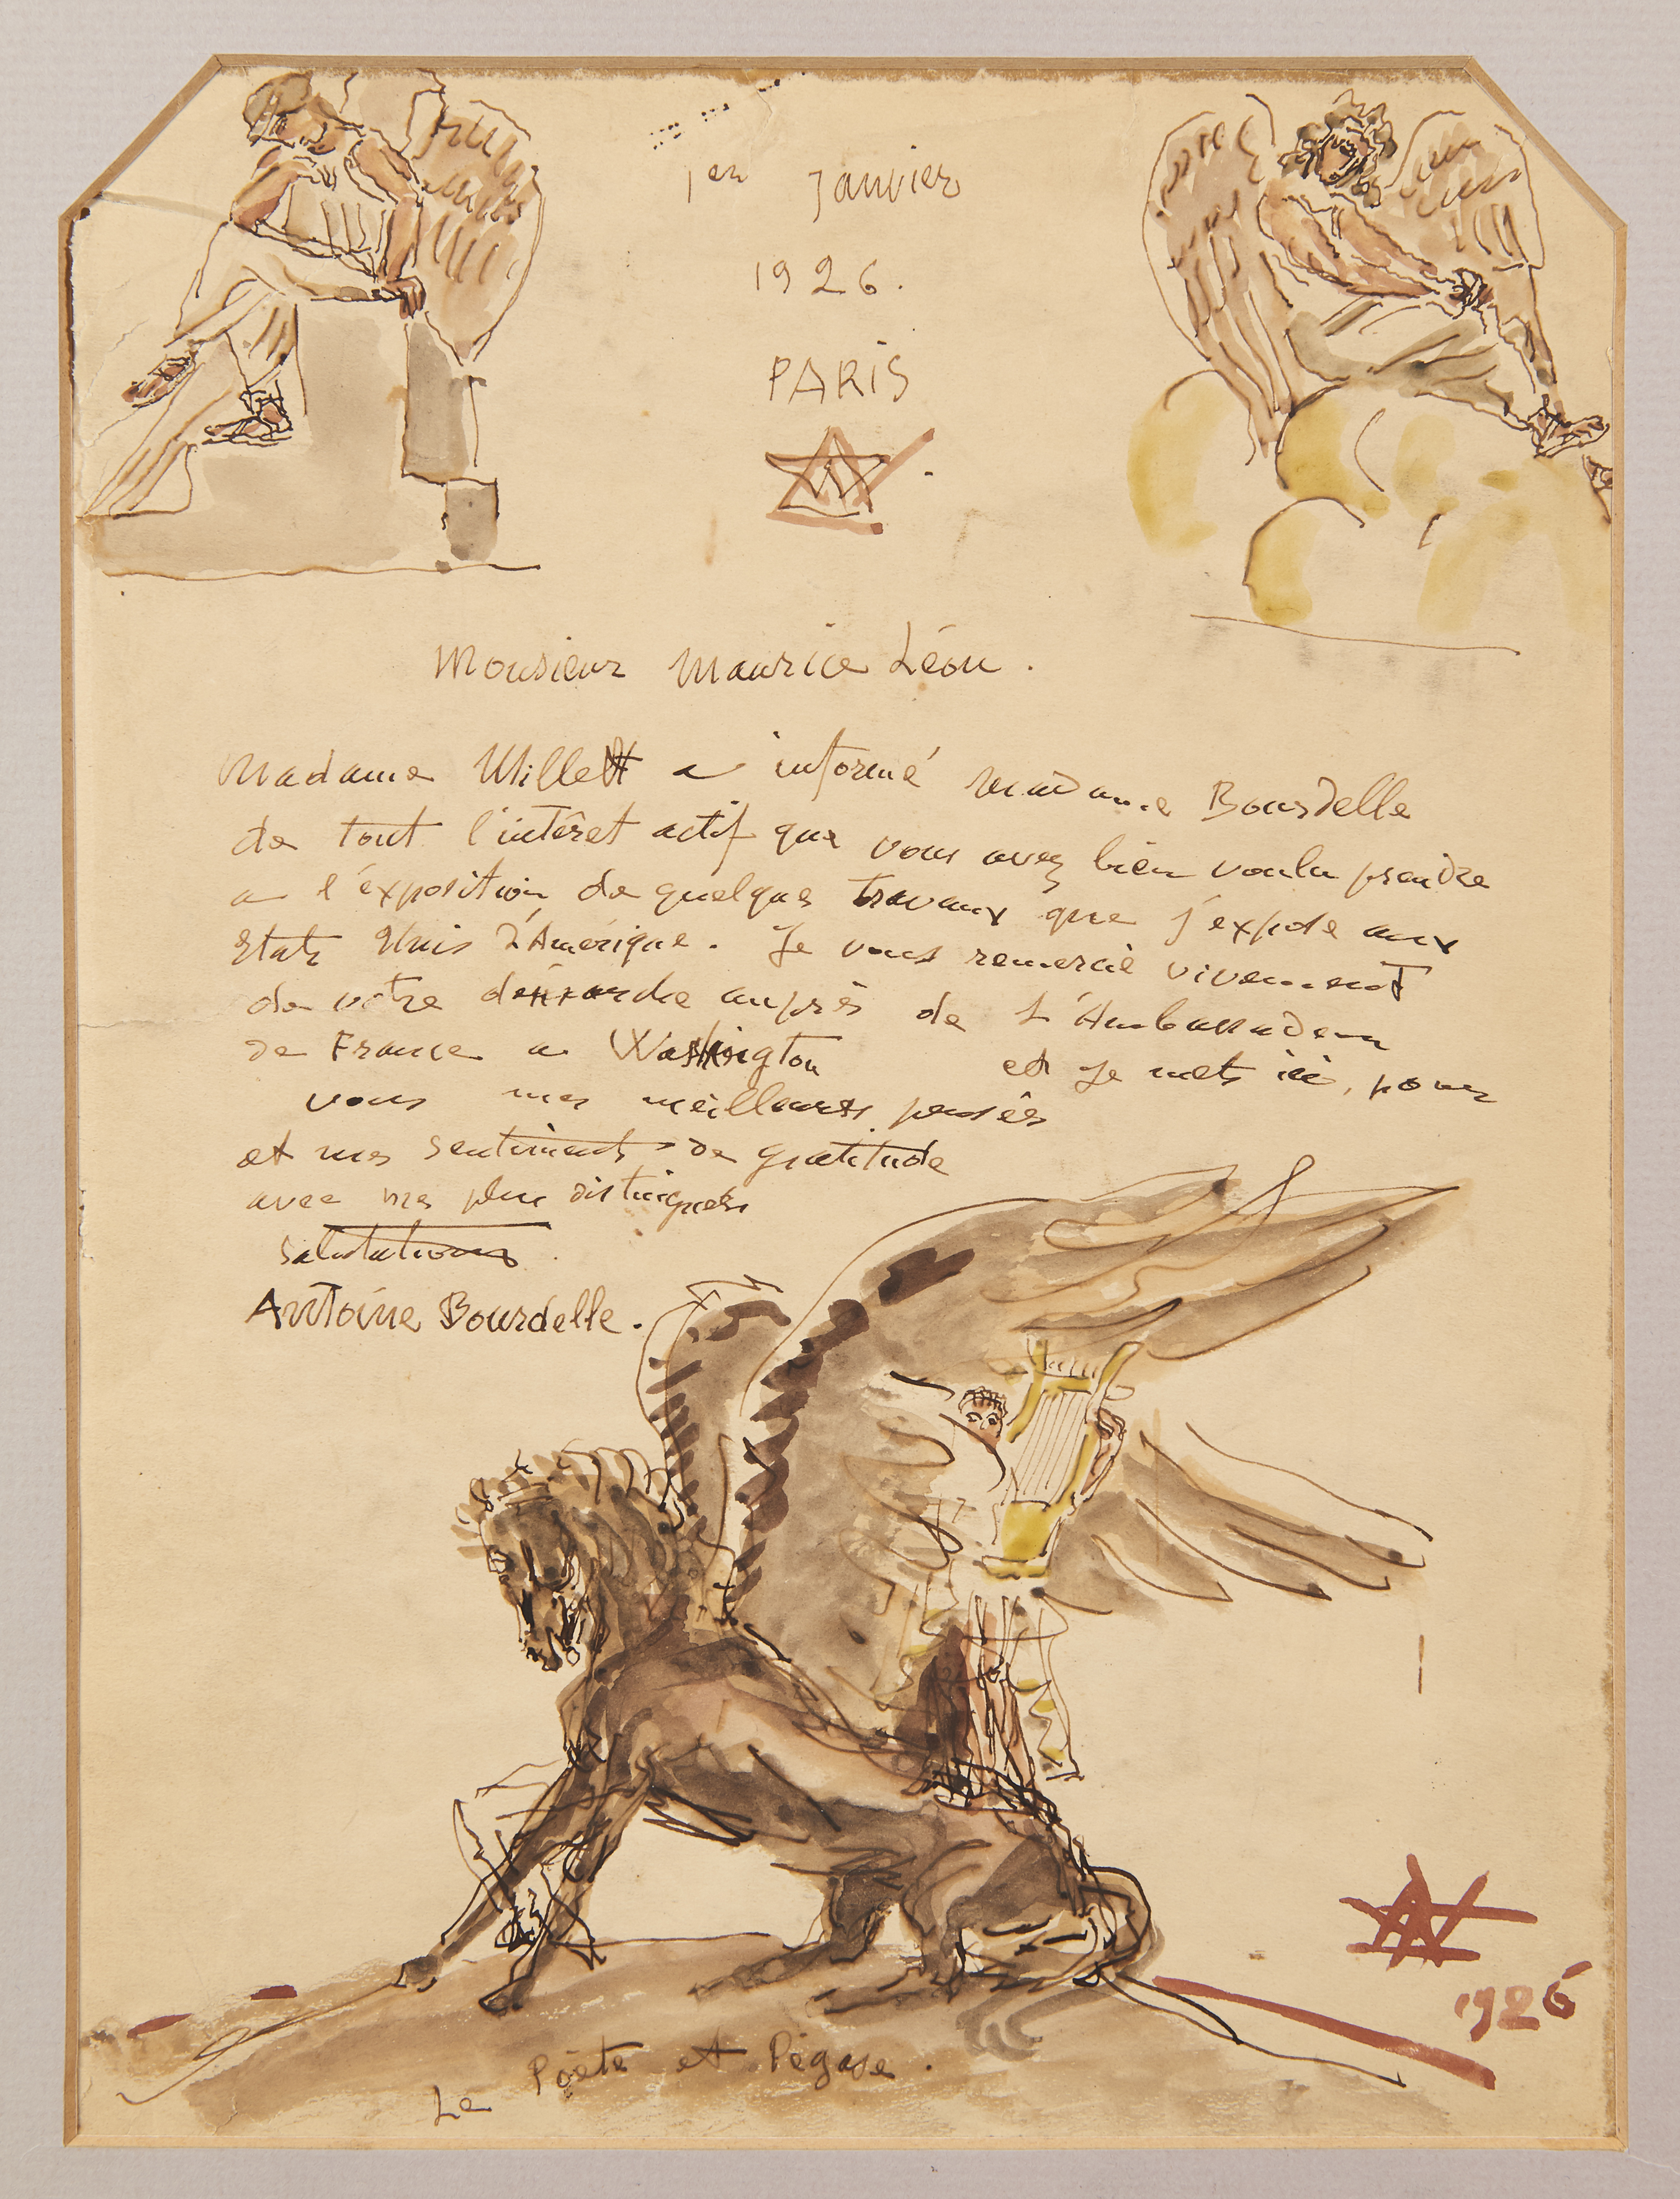 1er Janvier
1926.
PARIS
Monsieur Maurice Léon.
Madame Millett a informé Madame Bourdelle
de tout l'intêret actif que vous avez bien voulu prendre
a l'éxposition de quelques travaux que j'expose aux
Etats Unis d'Amérique. Je vous remercie vivement
de votre démarche auprès de L'Ambassadeur
de France a Washington et Je mets ici, pour
vous mes meilleures pensées
et mes sentiments de gratitude
avec mes plus distinguées
salutations.
Antoine Bourdelle.
1926
Le Poète et Pégase.